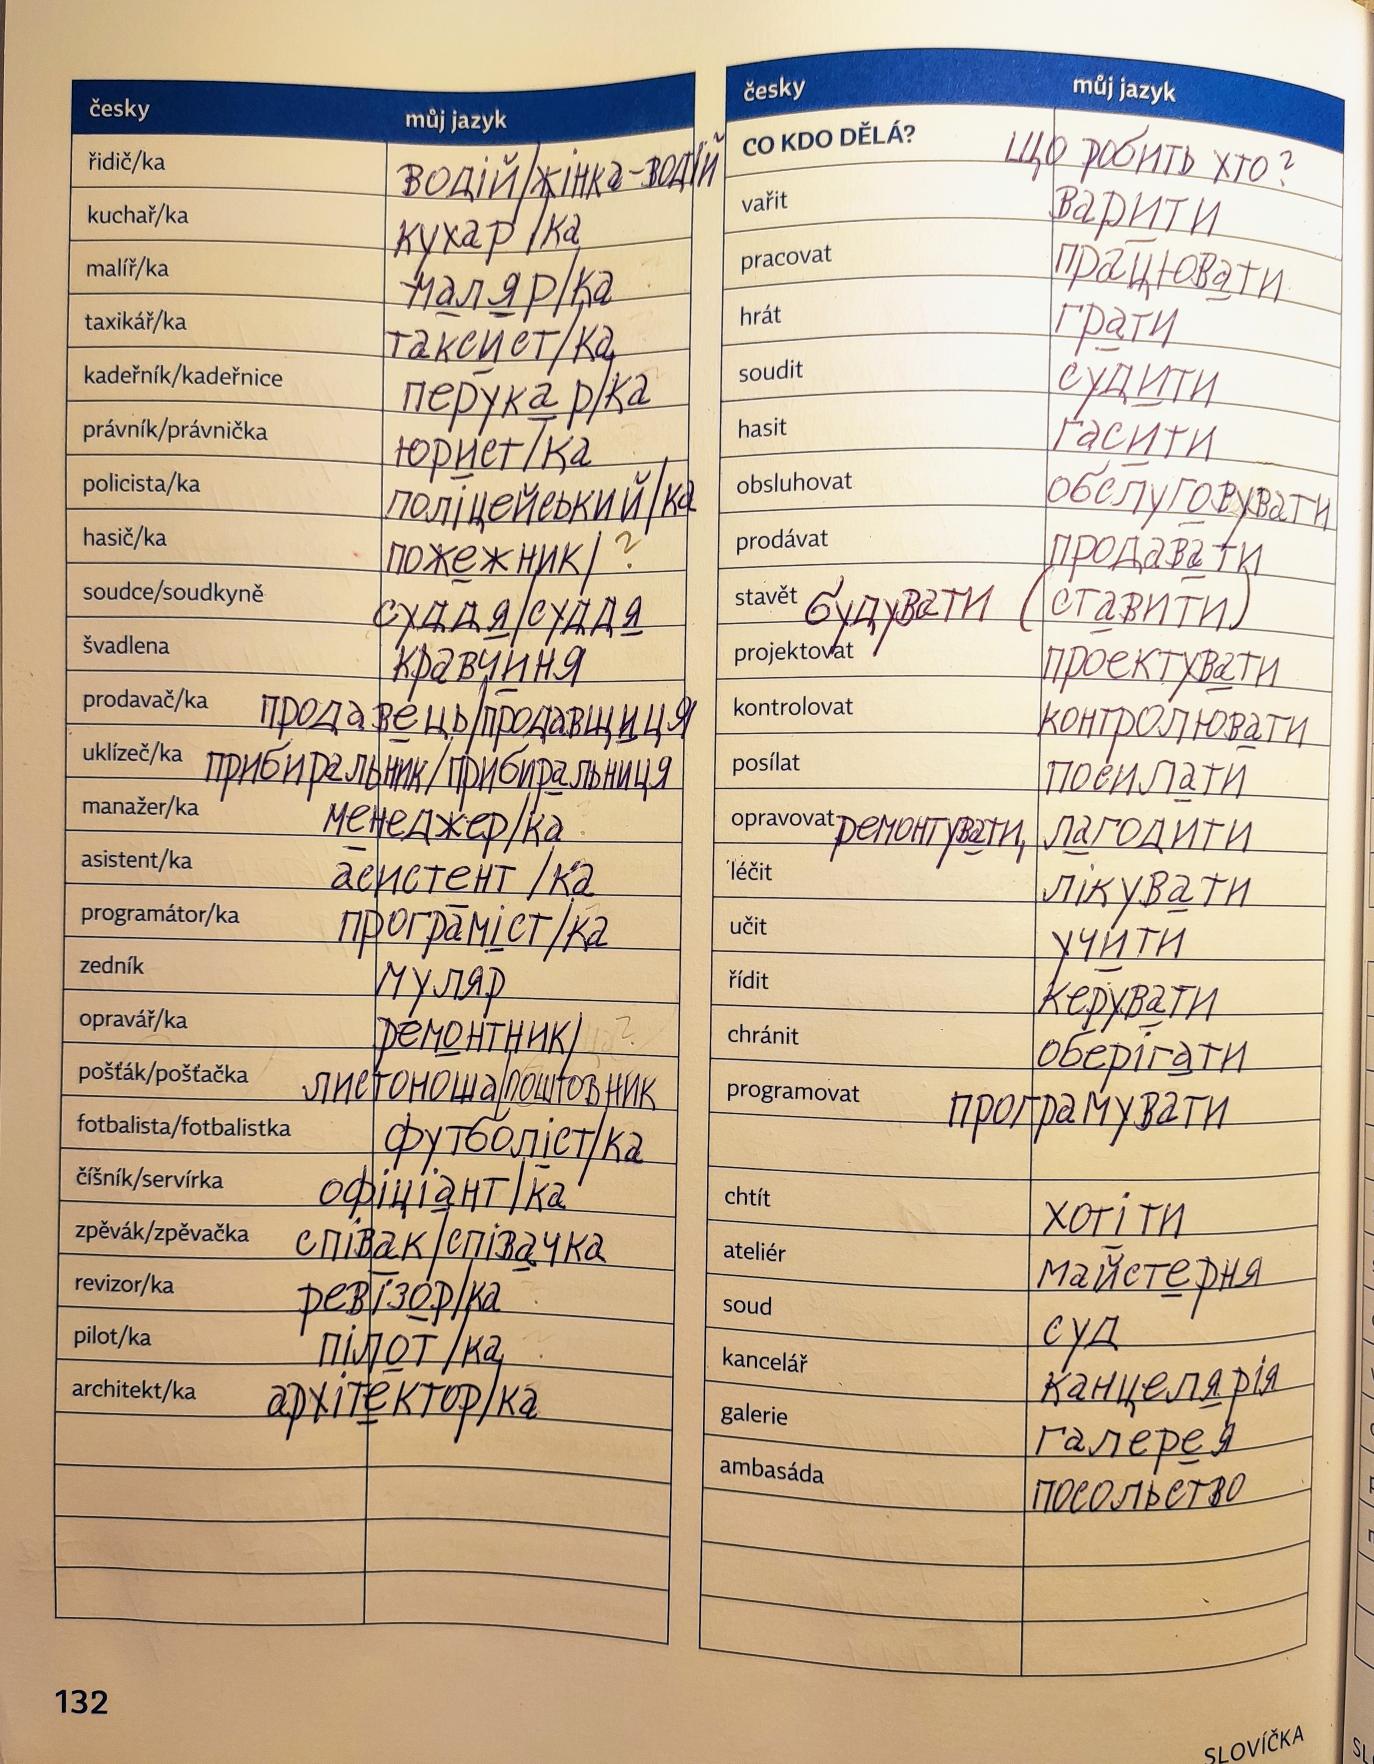 česky můj jazyk
řidič/ka водій/жінка-водій
kuchař/ka кухар/ка
malíř/ka маляр/ка
taxikář/ka таксист/ка
kadeřník/kadeřnice перукар/ка
právník/právnička юрист/ка
policista/ka поліцейський/ка
hasič/ka пожежник/?
soudce/soudkyně суддя/суддя
švadlena кравчиня
prodavač/ka продавець/продавщиця
uklízeč/ka прибиральник/прибиральниця
manažer/ka менеджер/ка
asistent/ka асистент/ка
programátor/ka програміст/ка
zedník муляр
opravář/ka ремонтник/
pošťák/pošťačka листоноша/поштовник
fotbalista/fotbalistka футболіст/ка
číšník/servírka офіціант/ка
zpěvák/zpěvačka співак/співачка
revizor/ka ревізор/ка
pilot/ka пілот/ка
architekt/ka архітектор/ка
132
česky můj jazyk
CO KDO DĚLÁ? що робить хто?
vařit варити
pracovat працювати
hrát грати
soudit судити
hasit гасити
obsluhovat обслуговувати
prodávat продавати
stavět будувати (ставити)
projektovat проектувати
kontrolovat контролювати
posílat посилати
opravovat ремонтувати, лагодити
léčit лікувати
učit учити
řídit керувати
chránit оберігати
programovat програмувати
chtít хотіти
ateliér майстерня
soud суд
kancelář канцелярія
galerie галерея
ambasáda посольство
SLOVÍČKA